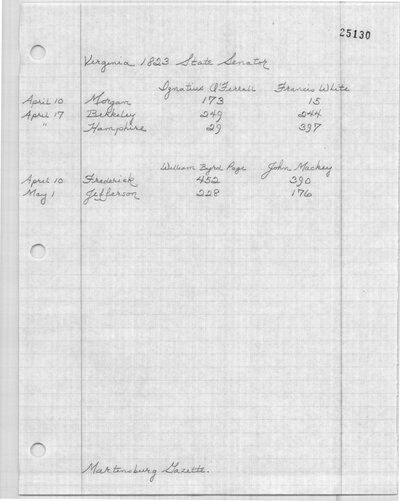 25130
Virginia 1823 State Senator
Ignatius O'Ferrall Francis White
April 10 Morgan 173 15
April 17 Berkeley 249 244
" Hampshire 29 397
William Byrd Page John Mackey
April 10 Frederick 452 390
May 1 Jefferson 228 176
Martensburg Gazette.